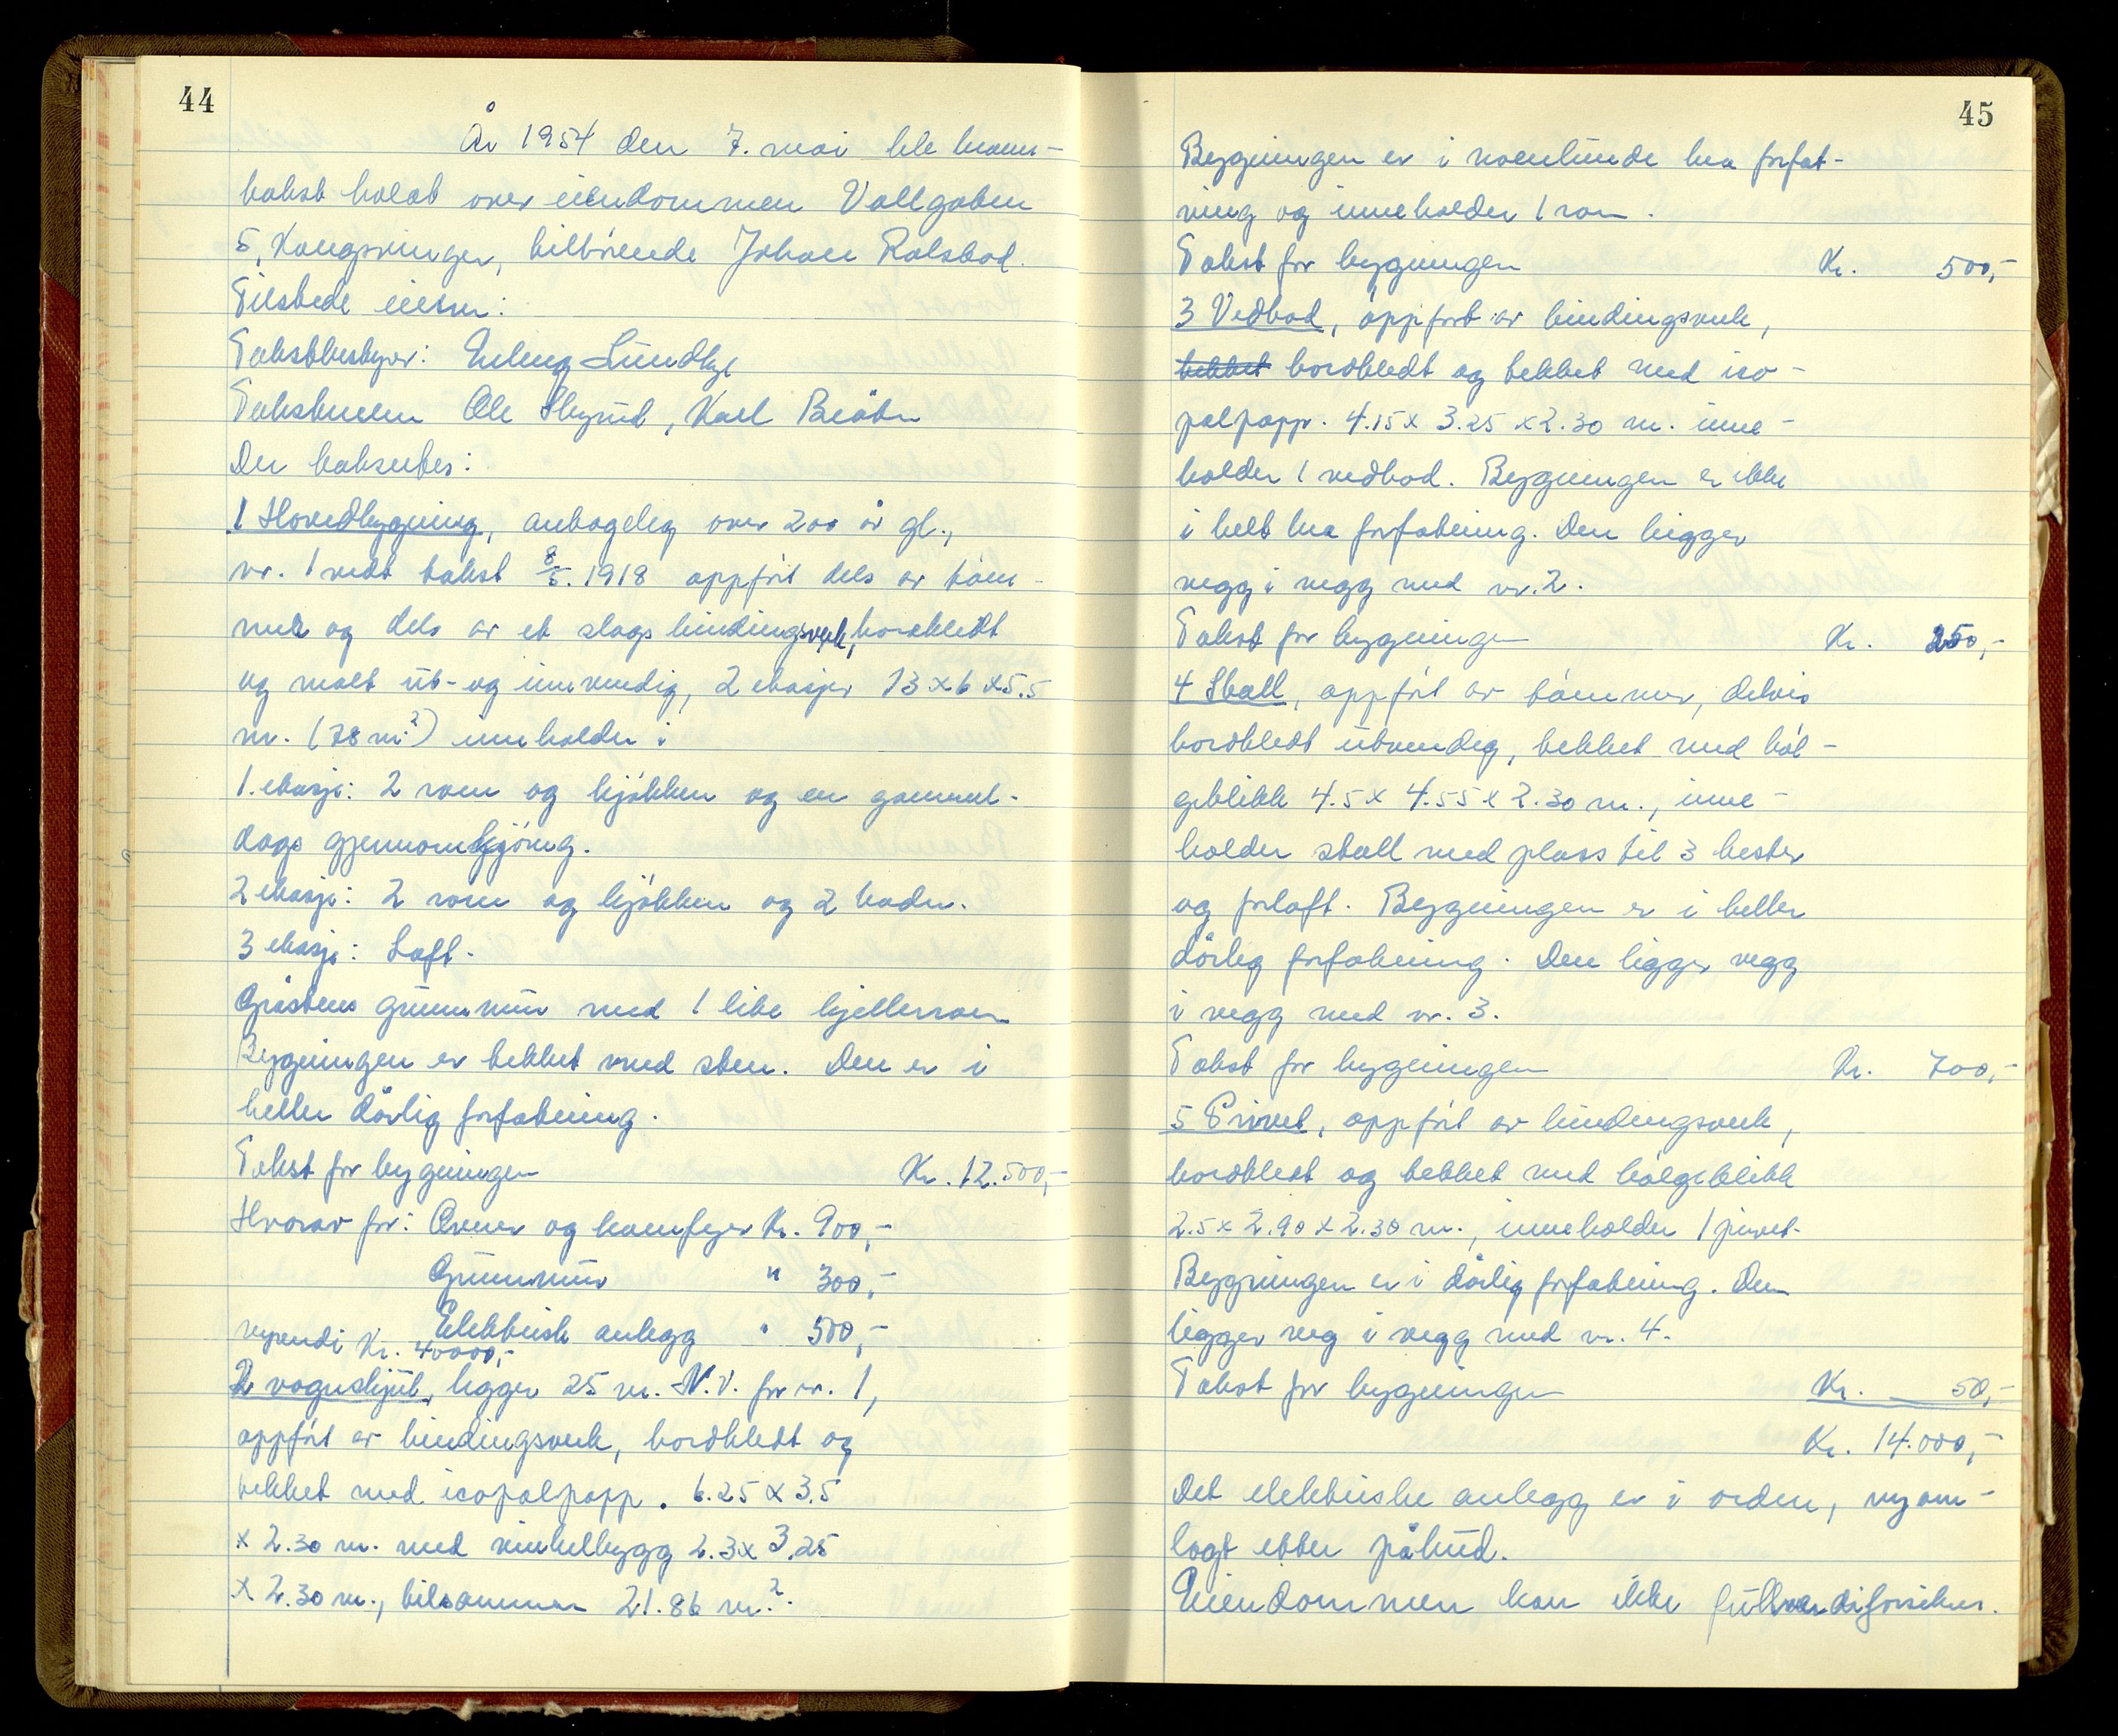 44
År 1954 den 7. mai ble brann-
takst holdt over eiendommen Vollgaten
5, Kongsvinger, tilhörende Johan Rolstad.
Tilstede eieren:
Takstbestyrer: Erling Lundby
Takstmenn Ole Skyrud, Karl Bråten
Der takseres:
1 Hovedbygning, antagelig over 200 år gl.,
nr. 1 vedt takst 8/5. 1918 oppfört dels av töm-
mer og dels av et slags bindingsverk, bordkledt
og malt ut- og innvendig, 2 etasjer 13 x 6 x 5.5
m. (78 m²) inneholder i
1. etasje: 2 rom og kjökken og en gammel-
dags gjennomkjöring.
2 etasje: 2 rom og kjökken og 2 boder.
3 etasje: Loft.
Gråstens grunnmur med 1 lite kjellerrom
Bygningen er tekket med sten. Den er i
heller dårlig forfatning.
Takst for bygningen Kr. 12.500,-
Hvorav for: Ovner og komfyrer Kr. 900,-
Grunnmur " 300,-
Elektrisk anlegg " 500,-
nyverdi Kr. 40000,-
2 vognskjul, ligger 25 m. N.V. for nr. 1,
oppfört av bindingsverk, bordkledt og
tekket med icopalpapp. 6.25 x 3.5
x 2.30 m. med vinkelbygg 2.3 x 3.25
x 2.30 m., tilsammen 21.86 m².
45
Bygningen er i noenlunde bra forfat-
ning og inneholder 1 rom.
Takst for bygningen Kr. 500,-
3 Vedbod, oppfört av bindingsverk,
tekket bordkledt og tekket med ico-
palpapp. 4.15 x 3.25 x 2.30 m. inne-
holder 1 vedbod. Bygningen er ikke
i helt bra forfatning. Den ligger
vegg i vegg med nr. 2.
Takst for bygningen Kr. 250,-
4 Stall, oppfört av tömmer, delvis
bordkledt utvendig, tekket med böl-
geblikk 4.5 x 4.55 x 2.30 m., inne-
holder stall med plass til 3 hester
og forloft. Bygningen er i heller
dårlig forfatning. Den ligger vegg
i vegg med nr. 3.
Takst for bygningen Kr. 700,-
5 Privet, oppfört av bindingsverk,
bordkledt og tekket med bölgeblikk
2.5 x 2.90 x 2.30 m., inneholder 1 privet.
Bygningen er i dårlig forfatning. Den
ligger veg i vegg med nr. 4.
Takst for bygningen Kr. 50,-
Kr. 14.000,-
Det elektriske anlegg er i orden, nyom-
lagt etter påbud.
Eiendommen kan ikke fullverdiforsikres.